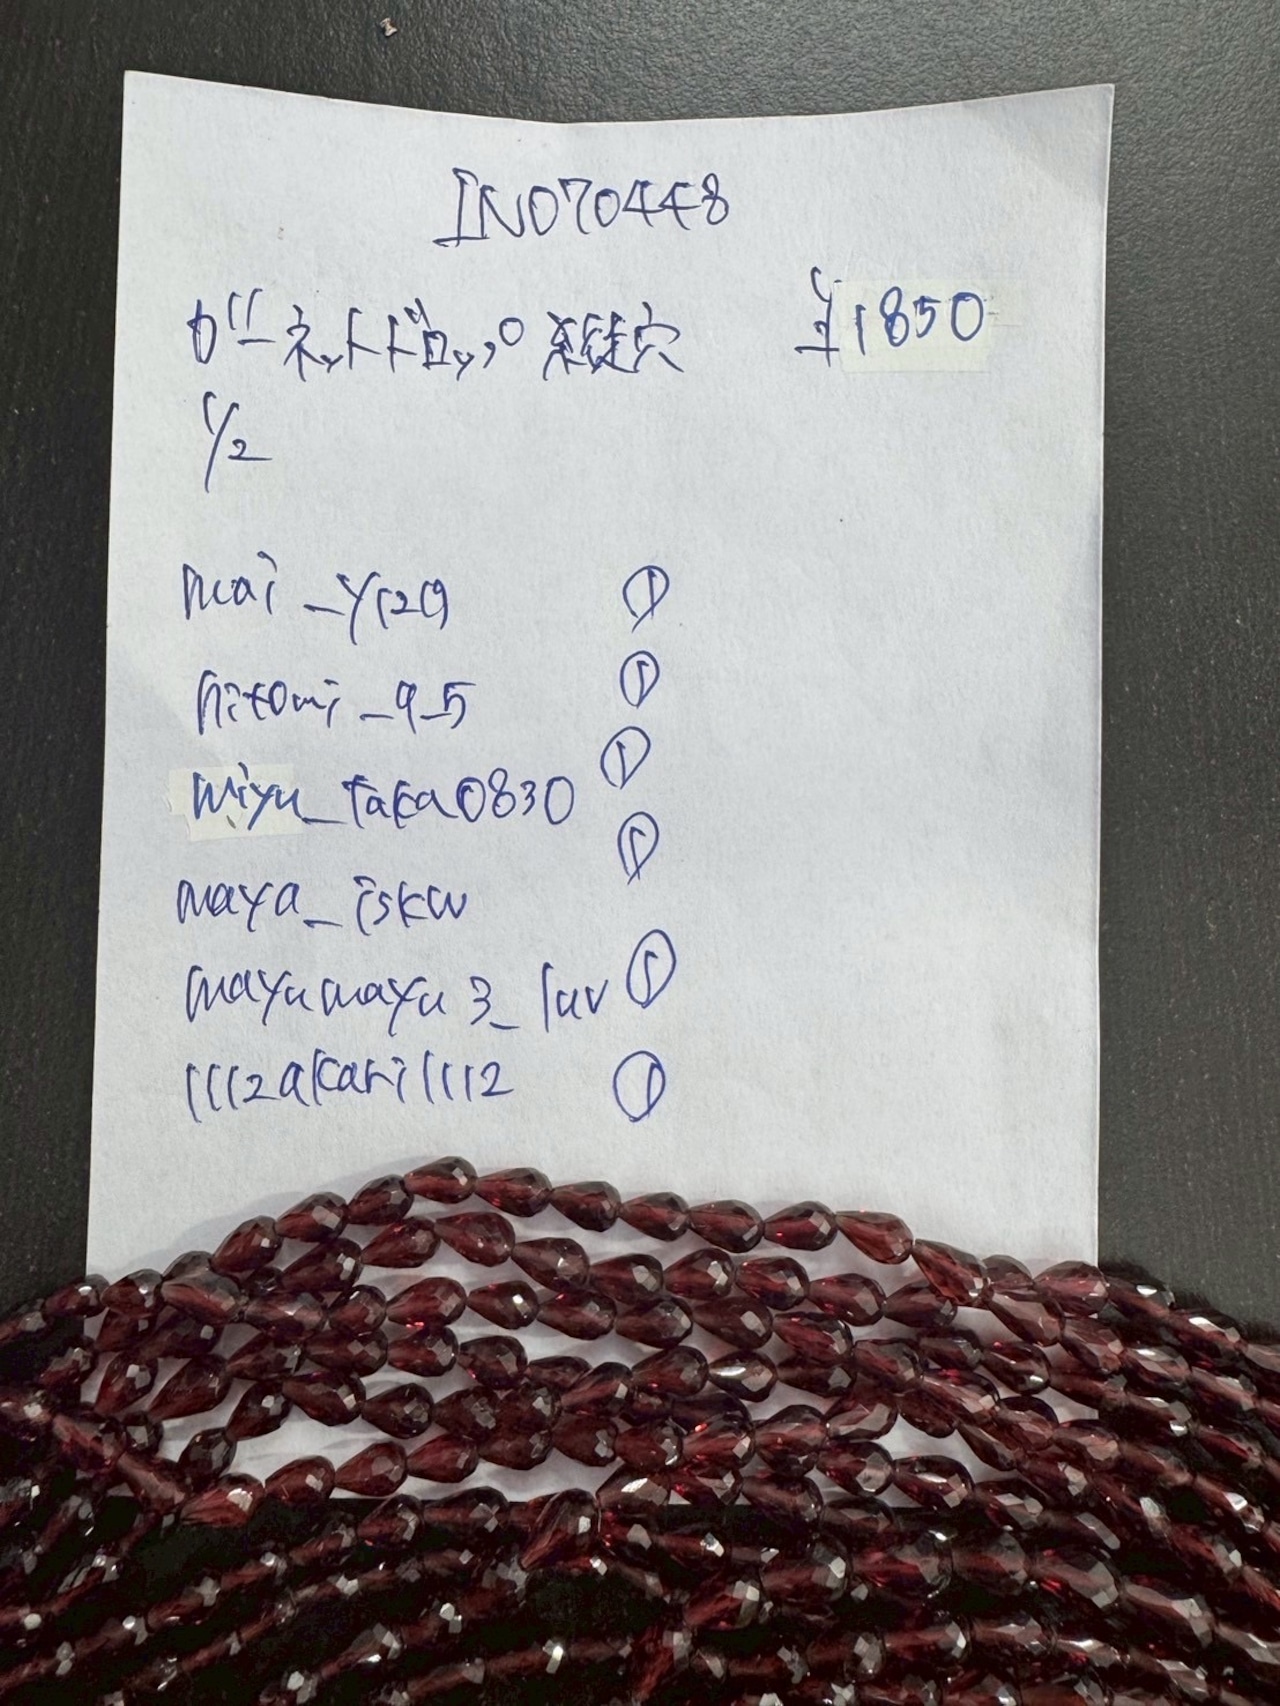 IN070448
ガーネットドロップ 縦穴 ¥1850
1/2
mai_y129 ①
hitomi_9_5 ①
miyu_taka0830 ①
maya_iskw ①
mayumayu3_luv ①
1112akari1112 ①